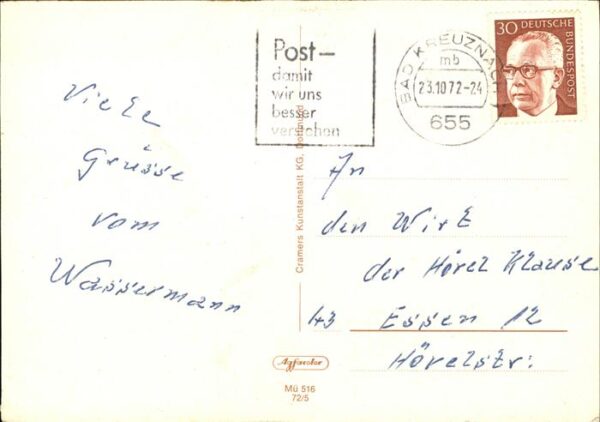 Post—
damit
wir uns
besser
verstehen
BAD KREUZNACH
mb
23.10.72-24
655
30 DEUTSCHE
BUNDESPOST
Viele
Grüsse
vom
Wassermann
Cramers Kunstanstalt KG, Dortmund
An
den Wirt
der Hövel Klause
43 Essen 12
Hövelstr:
Agfacolor
Mü 516
72/5